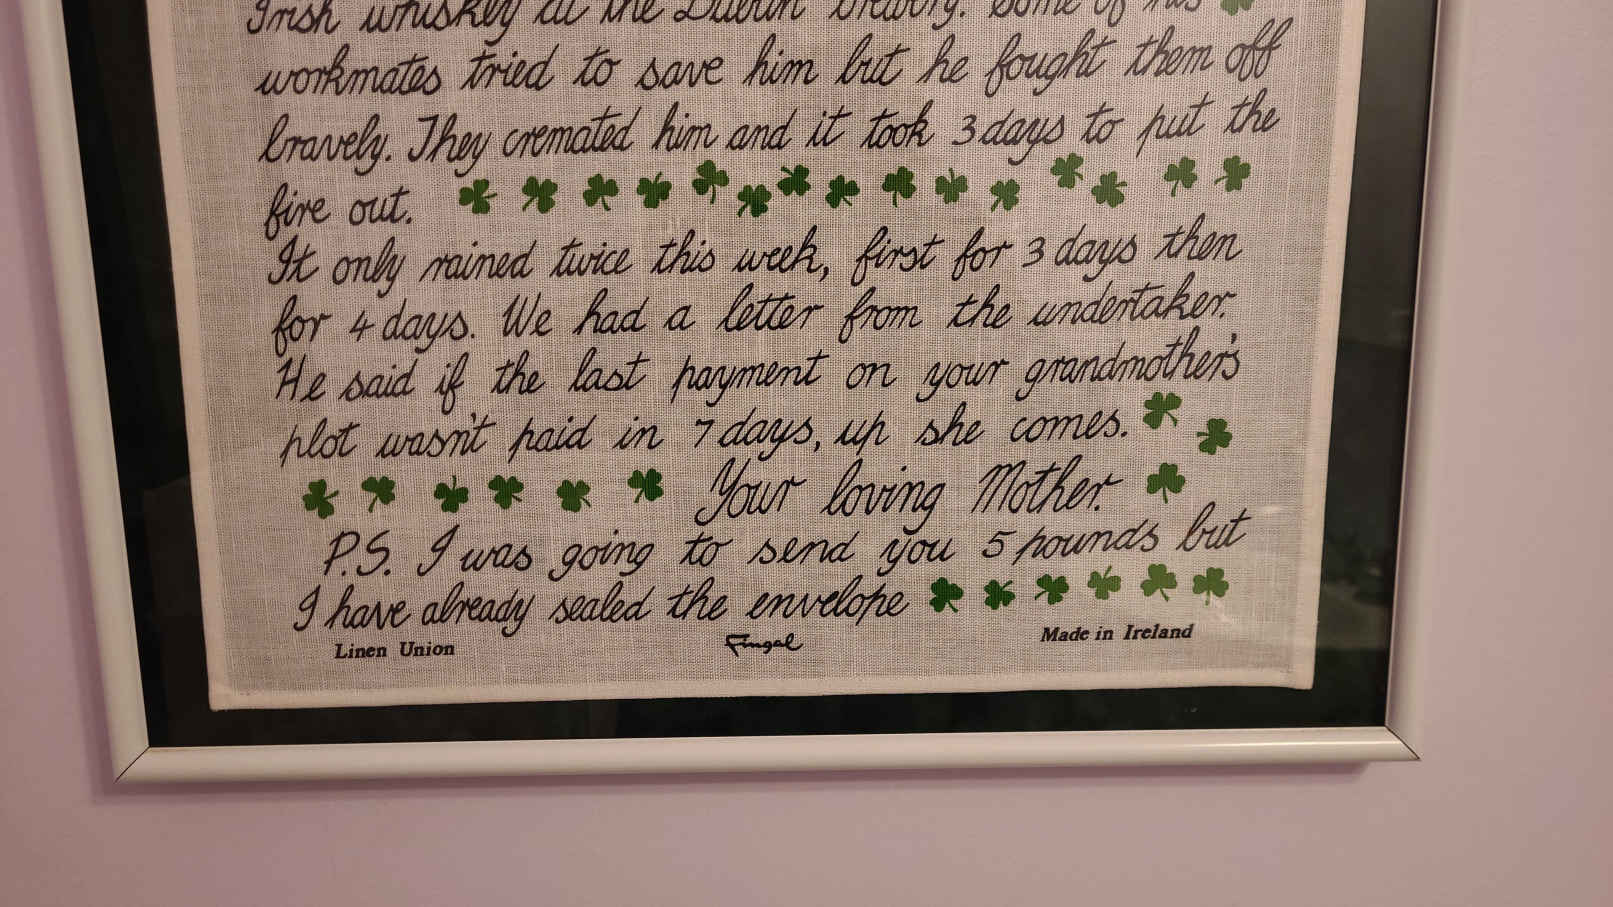 Irish whiskey at the Dublin brewery. Some of his
workmates tried to save him but he fought them off
bravely. They cremated him and it took 3 days to put the
fire out.
It only rained twice this week, first for 3 days then
for 4 days. We had a letter from the undertaker.
He said if the last payment on your grandmother's
plot wasn't paid in 7 days, up she comes.
Your loving Mother.
P.S. I was going to send you 5 pounds but
I have already sealed the envelope
Linen Union Fingal Made in Ireland